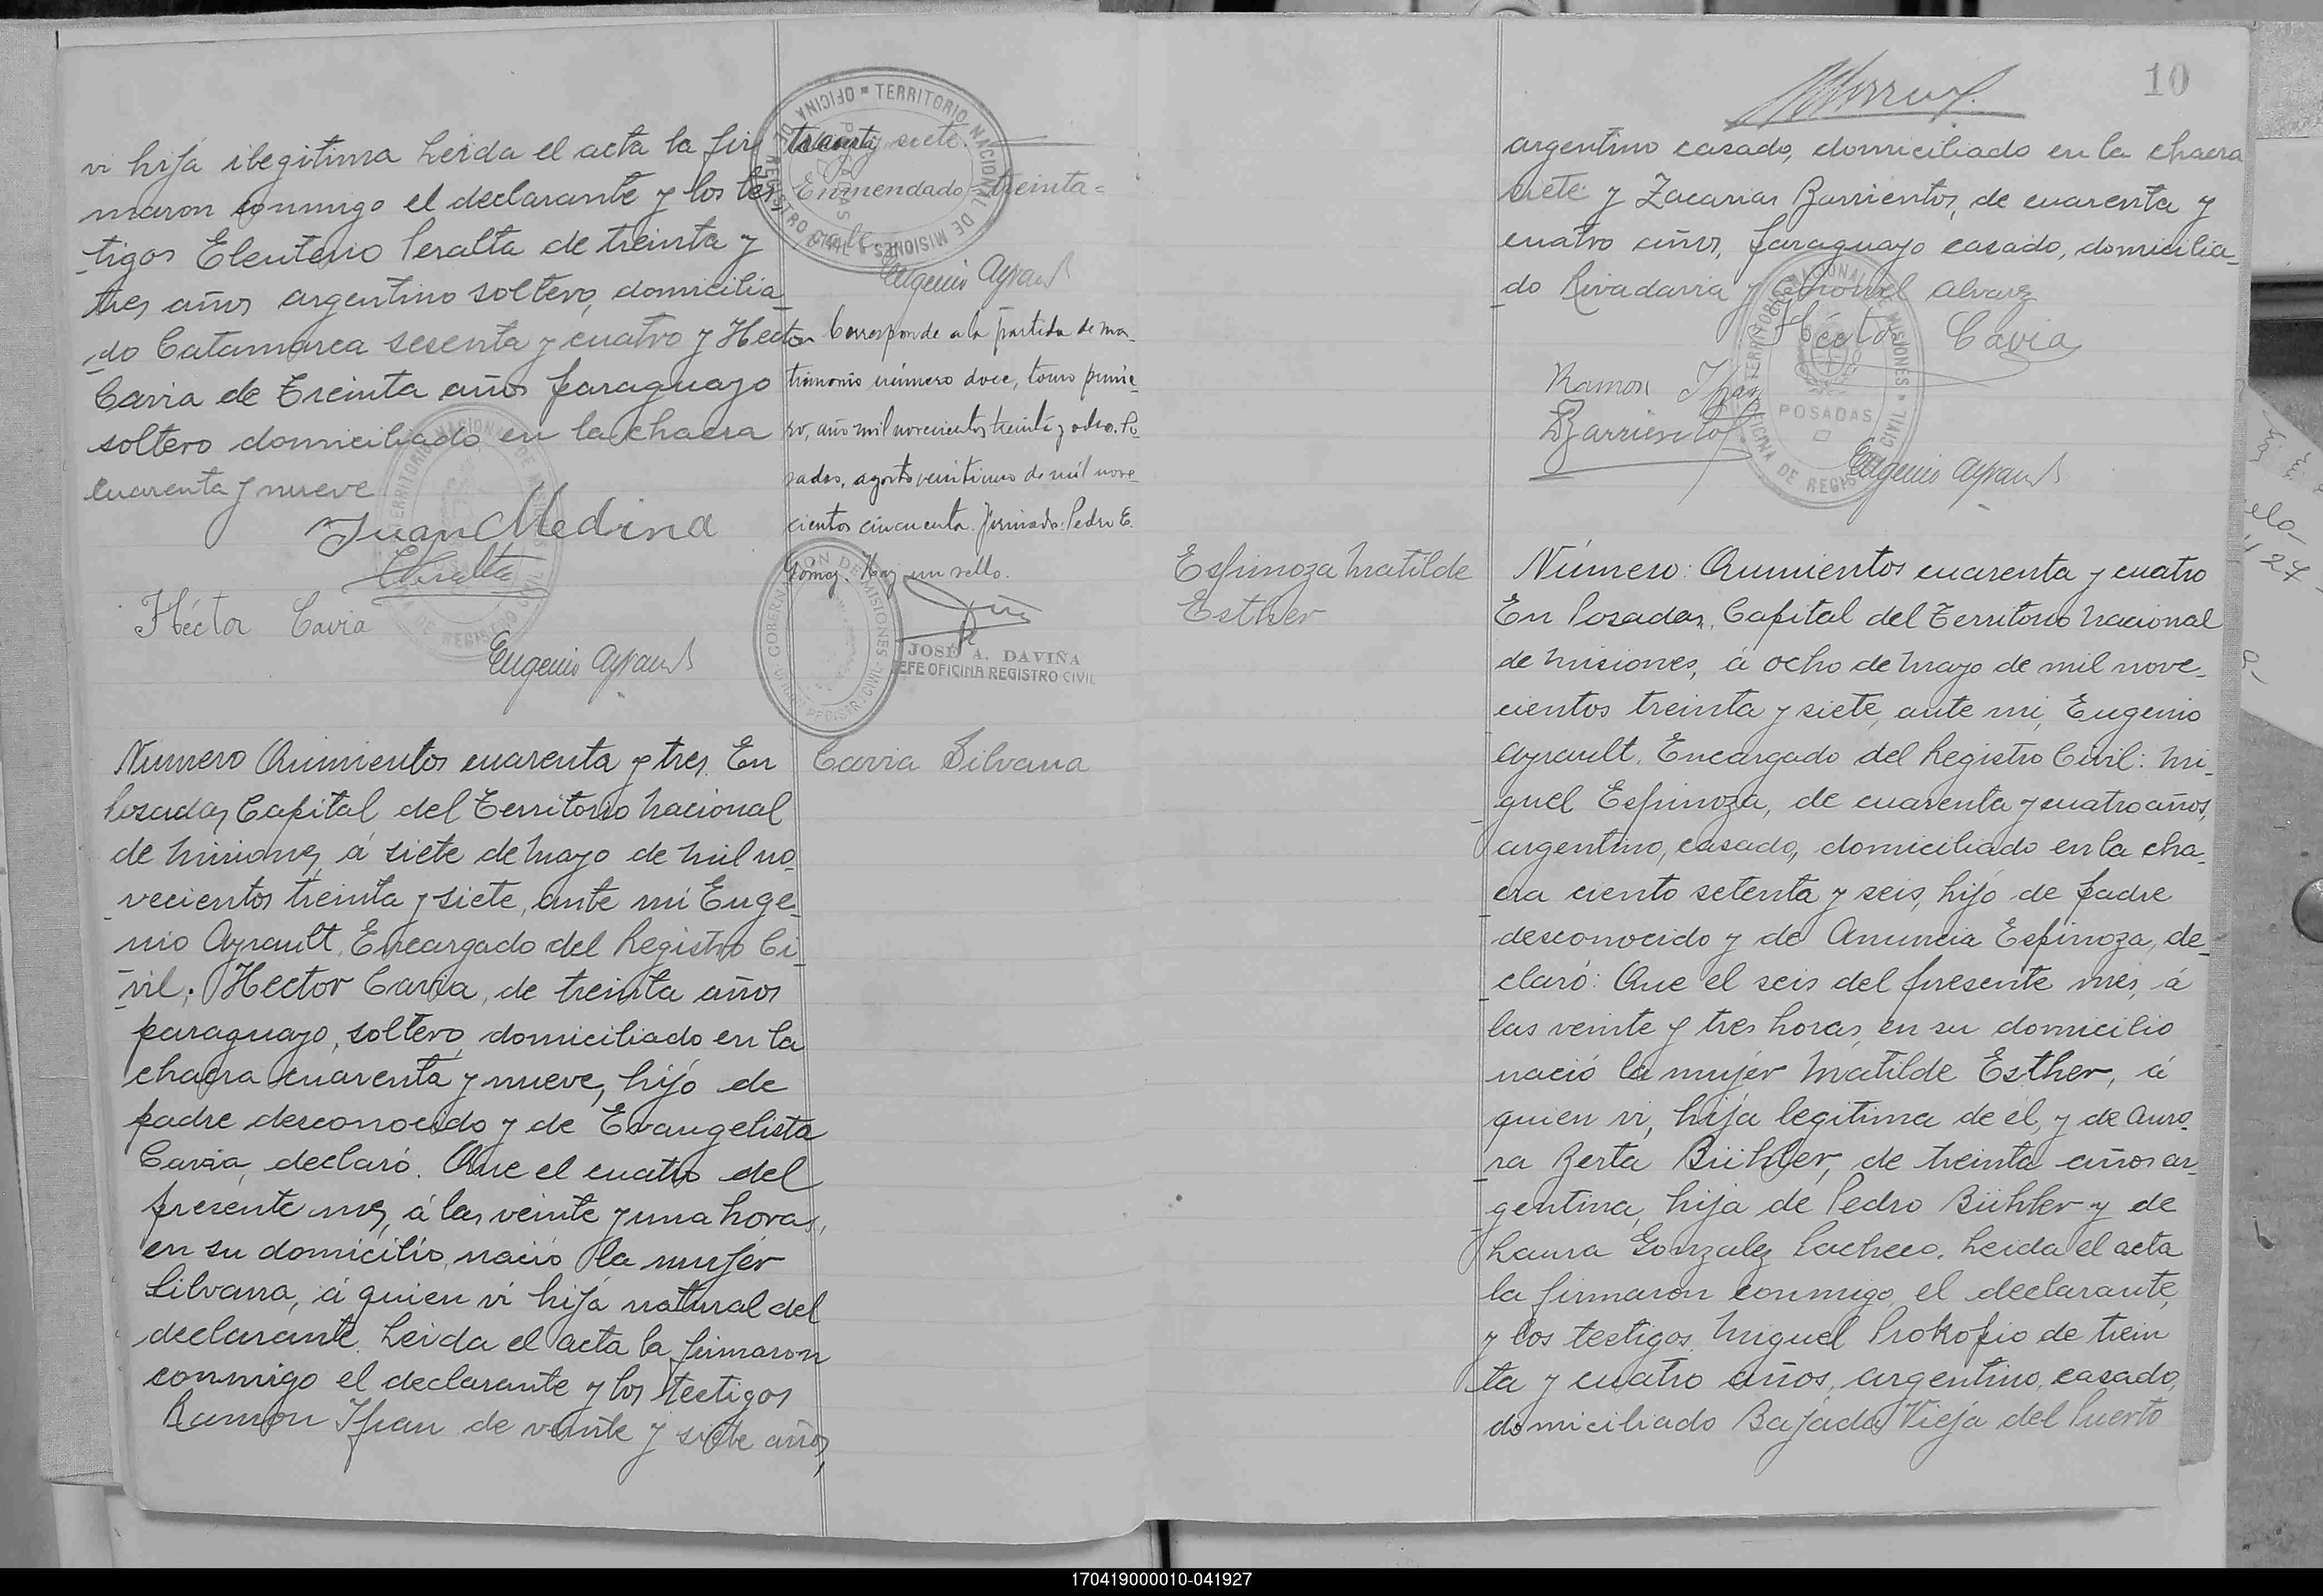 vi hija ilegitima Leida el acta la fir
maron conmigo el declarante y los tes
tigos Eleuterio Peralta de treinta y
tres años argentino soltero, domicilia
do Catamarca sesenta y cuatro y Hector
Cavia de treinta años paraguayo
soltero domiciliado en la chacra
cuarenta y nueve
Juan Medina
EPeralta
Héctor Cavia
Eugenio Ayrault
treinta y siete.
Enmendado = treinta =
vale.
Eugenio Ayrault
Corresponde a la partida de ma
trimonio número doce, tomo prime
ro, año mil novecientos treinta y ocho. Po
sadas, agosto veintiuno de mil nove
cientos cincuenta. Firmado: Pedro E.
Gomez. Hay un sello.
JOSÉ A. DAVIÑA
JEFE OFICINA REGISTRO CIVIL
OFICINA DE REGISTRO CIVIL
TERRITORIO NACIONAL DE MISIONES
POSADAS
Numero Quinientos cuarenta y tres. En
Posadas Capital del Territorio Nacional
de Misiones, á siete de Mayo de Mil no
vecientos treinta y siete, ante mi Euge
nio Ayrault, Encargado del Registro Ci
vil; Hector Cavia, de treinta años
paraguayo, soltero, domiciliado en la
chacra cuarenta y nueve, hijo de
padre desconocido y de Evangelista
Cavia, declaró. Que el cuatro del
presente mes, á las veinte y una horas,
en su domicilio, nació la mujer
Silvana, á quien vi hija natural del
declarante. Leida el acta la firmaron
conmigo el declarante y los testigos
Ramon Ifran de veinte y siete años,
Cavia Silvana
10
argentino casado, domiciliado en la chacra
siete y Zacarias Barrientos, de cuarenta y
cuatro años, paraguayo casado, domicilia
do Rivadavia y Coronel Alvarez
Héctor Cavia
Ramon Ifran
ZBarrientos
Eugenio Ayrault
TERRITORIO NACIONAL DE MISIONES
OFICINA DE REGISTRO CIVIL
POSADAS
Espinoza Matilde
Esther
Número: Quinientos cuarenta y cuatro
En Posadas, Capital del Territorio Nacional
de Misiones, á ocho de Mayo de mil nove
cientos treinta y siete, ante mi, Eugenio
Ayrault, Encargado del Registro Civil: Mi
guel Espinoza, de cuarenta y cuatro años,
argentino, casado, domiciliado en la cha
cra ciento setenta y seis, hijo de padre
desconocido y de Anuncia Espinoza, de
claró: Que el seis del presente mes, á
las veinte y tres horas, en su domicilio
nació la mujer Matilde Esther, á
quien vi, hija legitima de él, y de Auro
ra Berta Bühler, de treinta años ar
gentina, hija de Pedro Bühler y de
Laura Gonzalez Pacheco. Leida el acta
la firmaron conmigo, el declarante,
y los testigos Miguel Prokopio de trein
ta y cuatro años, argentino, casado,
domiciliado Bajada Vieja del Puerto
170419000010-041927